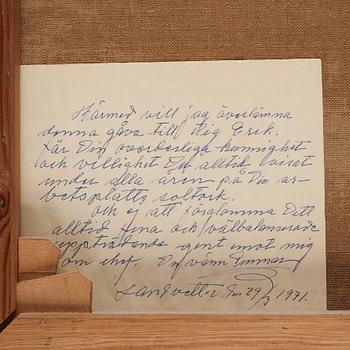 Härmed vill jag överlämna
denna gåva till Dig Erik.
här Din kunnighet
och villighet Du alltid visat
under alla åren på Din ar-
betsplats
och ej att förglömma Ditt
alltid fina och välbalanserade
uppträdande gent emot mig
om chef. Din vänn
Landvetter den 29/3 1971.